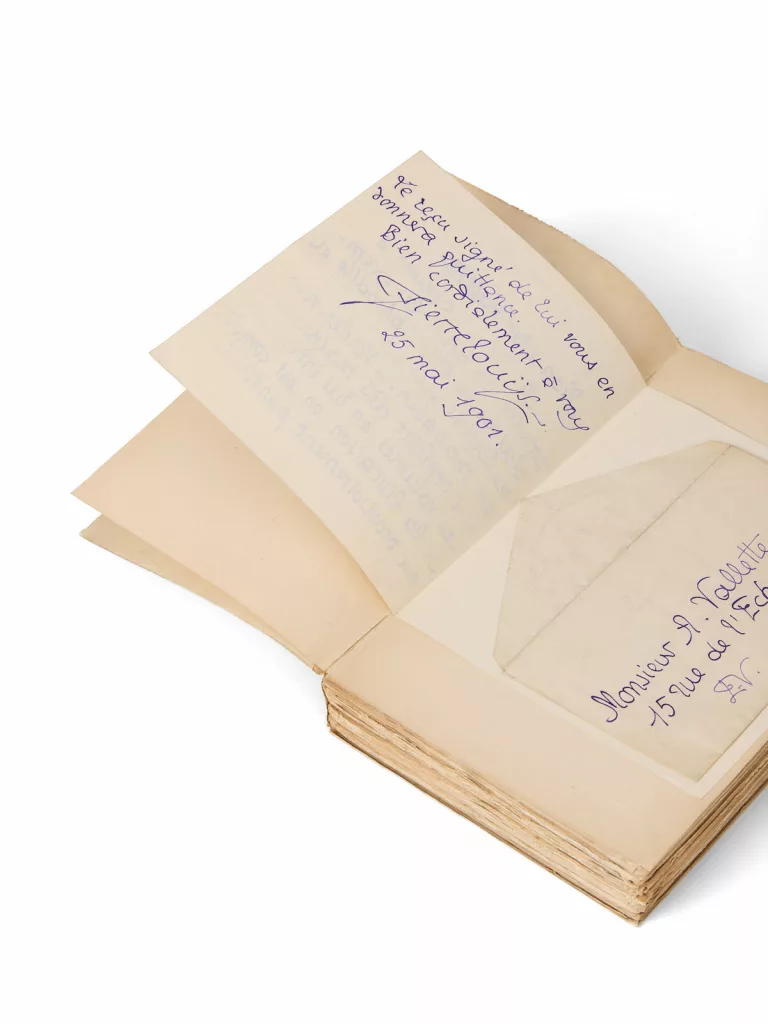 Le reçu signé de lui vous en
donnera quittance.
Bien cordialement à vous
Pierre Louÿs.
25 mai 1901.
Monsieur A. Vallette
15 rue de l'Ech
E.V.